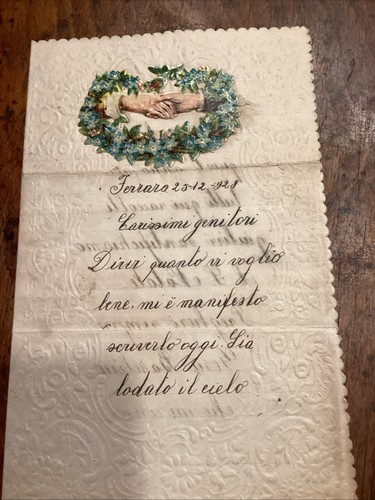 Ferrara 25-12-928
Carissimi genitori
Dirvi quanto vi voglio
bene. mi è manifesto
scriverlo oggi. Sia
lodato il cielo